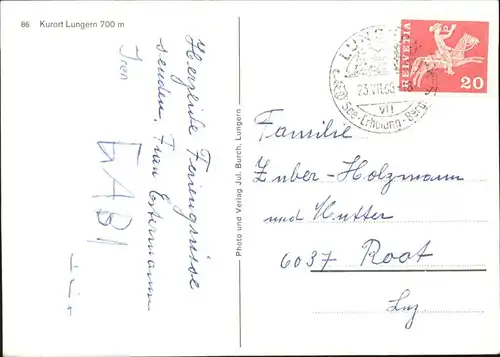 86 Kurort Lungern 700 m
Herzliche Feriengrüsse
senden, Frau Estermann
Iren
GABI
Photo und Verlag Jul. Burch. Lungern
LUNGERN
23.VII.68
VII
See-Erholung-Berge
HELVETIA
20
Familie
Zuber-Holzmann
und Mutter
6037 Root
Luz